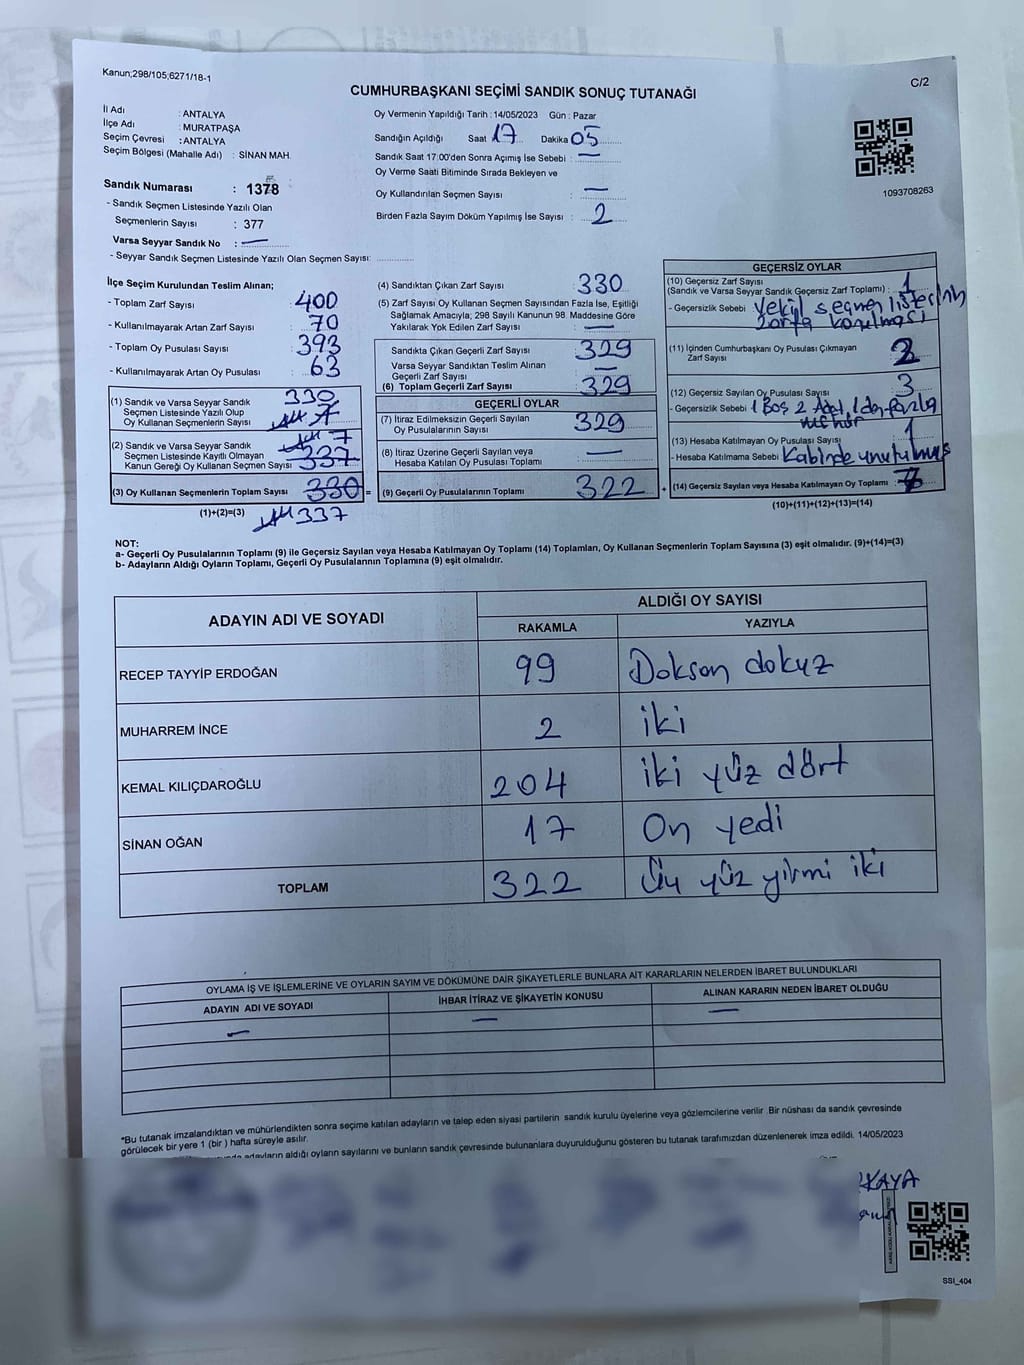 Kanun;298/105;6271/18-1
C/2
CUMHURBAŞKANI SEÇİMİ SANDIK SONUÇ TUTANAĞI
İl Adı : ANTALYA
İlçe Adı : MURATPAŞA
Seçim Çevresi : ANTALYA
Seçim Bölgesi (Mahalle Adı) : SİNAN MAH.
Sandık Numarası : 1378
- Sandık Seçmen Listesinde Yazılı Olan
Seçmenlerin Sayısı : 377
Varsa Seyyar Sandık No : —
- Seyyar Sandık Seçmen Listesinde Yazılı Olan Seçmen Sayısı:
Oy Vermenin Yapıldığı Tarih : 14/05/2023 Gün : Pazar
Sandığın Açıldığı Saat 17 Dakika 05
Sandık Saat 17:00'den Sonra Açımış İse Sebebi : —
Oy Verme Saati Bitiminde Sırada Bekleyen ve
Oy Kullandırılan Seçmen Sayısı : —
Birden Fazla Sayım Döküm Yapılmış İse Sayısı : 2
1093708263
İlçe Seçim Kurulundan Teslim Alınan;
- Toplam Zarf Sayısı : 400
- Kullanılmayarak Artan Zarf Sayısı : 70
- Toplam Oy Pusulası Sayısı : 393
- Kullanılmayarak Artan Oy Pusulası : 63
(1) Sandık ve Varsa Seyyar Sandık 330
Seçmen Listesinde Yazılı Olup
Oy Kullanan Seçmenlerin Sayısı
(2) Sandık ve Varsa Seyyar Sandık 7
Seçmen Listesinde Kayıtlı Olmayan
Kanun Gereği Oy Kullanan Seçmen Sayısı 337
(3) Oy Kullanan Seçmenlerin Toplam Sayısı 330 =
(1)+(2)=(3)
337
(4) Sandıktan Çıkan Zarf Sayısı : 330
(5) Zarf Sayısı Oy Kullanan Seçmen Sayısından Fazla İse, Eşitliği
Sağlamak Amacıyla; 298 Sayılı Kanunun 98. Maddesine Göre
Yakılarak Yok Edilen Zarf Sayısı : —
Sandıkta Çıkan Geçerli Zarf Sayısı : 329
Varsa Seyyar Sandıktan Teslim Alınan
Geçerli Zarf Sayısı : —
(6) Toplam Geçerli Zarf Sayısı : 329
GEÇERLİ OYLAR
(7) İtiraz Edilmeksizin Geçerli Sayılan
Oy Pusulalarının Sayısı : 329
(8) İtiraz Üzerine Geçerli Sayılan veya
Hesaba Katılan Oy Pusulası Toplamı : —
(9) Geçerli Oy Pusulalarının Toplamı : 322 +
GEÇERSİZ OYLAR
(10) Geçersiz Zarf Sayısı
(Sandık ve Varsa Seyyar Sandık Geçersiz Zarf Toplamı) : 1
- Geçersizlik Sebebi : Vekil seçmen listesinin
zarfa konulması
(11) İçinden Cumhurbaşkanı Oy Pusulası Çıkmayan
Zarf Sayısı : 2
(12) Geçersiz Sayılan Oy Pusulası Sayısı : 3
- Geçersizlik Sebebi 1 Boş 2 Adet 1'den fazla
mühür
(13) Hesaba Katılmayan Oy Pusulası Sayısı : 1
- Hesaba Katılmama Sebebi Kabinde unutulmuş
(14) Geçersiz Sayılan veya Hesaba Katılmayan Oy Toplamı : 7
(10)+(11)+(12)+(13)=(14)
NOT:
a- Geçerli Oy Pusulalarının Toplamı (9) ile Geçersiz Sayılan veya Hesaba Katılmayan Oy Toplamı (14) Toplamları, Oy Kullanan Seçmenlerin Toplam Sayısına (3) eşit olmalıdır. (9)+(14)=(3)
b- Adayların Aldığı Oyların Toplamı, Geçerli Oy Pusulalarının Toplamına (9) eşit olmalıdır.
ADAYIN ADI VE SOYADI
ALDIĞI OY SAYISI
RAKAMLA YAZIYLA
RECEP TAYYİP ERDOĞAN 99 Doksan dokuz
MUHARREM İNCE 2 iki
KEMAL KILIÇDAROĞLU 204 iki yüz dört
SİNAN OĞAN 17 On yedi
TOPLAM 322 Üç yüz yirmi iki
OYLAMA İŞ VE İŞLEMLERİNE VE OYLARIN SAYIM VE DÖKÜMÜNE DAİR ŞİKAYETLERLE BUNLARA AİT KARARLARIN NELERDEN İBARET BULUNDUKLARI
ADAYIN ADI VE SOYADI İHBAR İTİRAZ VE ŞİKAYETİN KONUSU ALINAN KARARIN NEDEN İBARET OLDUĞU
— — —
*Bu tutanak imzalandıktan ve mühürlendikten sonra seçime katılan adayların ve talep eden siyasi partilerin sandık kurulu üyelerine veya gözlemcilerine verilir. Bir nüshası da sandık çevresinde
görülecek bir yere 1 (bir ) hafta süreyle asılır.
adayların aldığı oyların sayılarını ve bunların sandık çevresinde bulunanlara duyurulduğunu gösteren bu tutanak tarafımızdan düzenlenerek imza edildi. 14/05/2023
KAYA
SSI_404